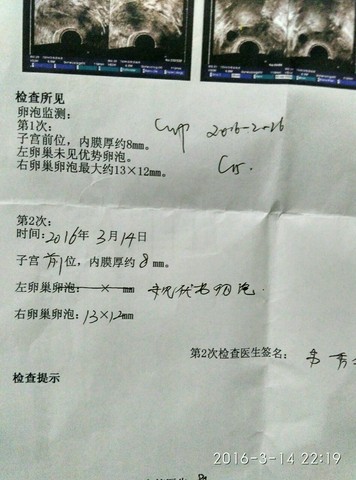 检查所见
卵泡监测:
第1次:
子宫前位,内膜厚约8mm。
左卵巢未见优势卵泡。
右卵巢卵泡最大约13×12mm。
第2次:
时间:2016年 3月14日
子宫 前位,内膜厚约 8 mm。
左卵巢卵泡: × mm 未见优势卵泡.
右卵巢卵泡:13×12mm
第2次检查医生签名:
检查提示
2016-3-14 22:19